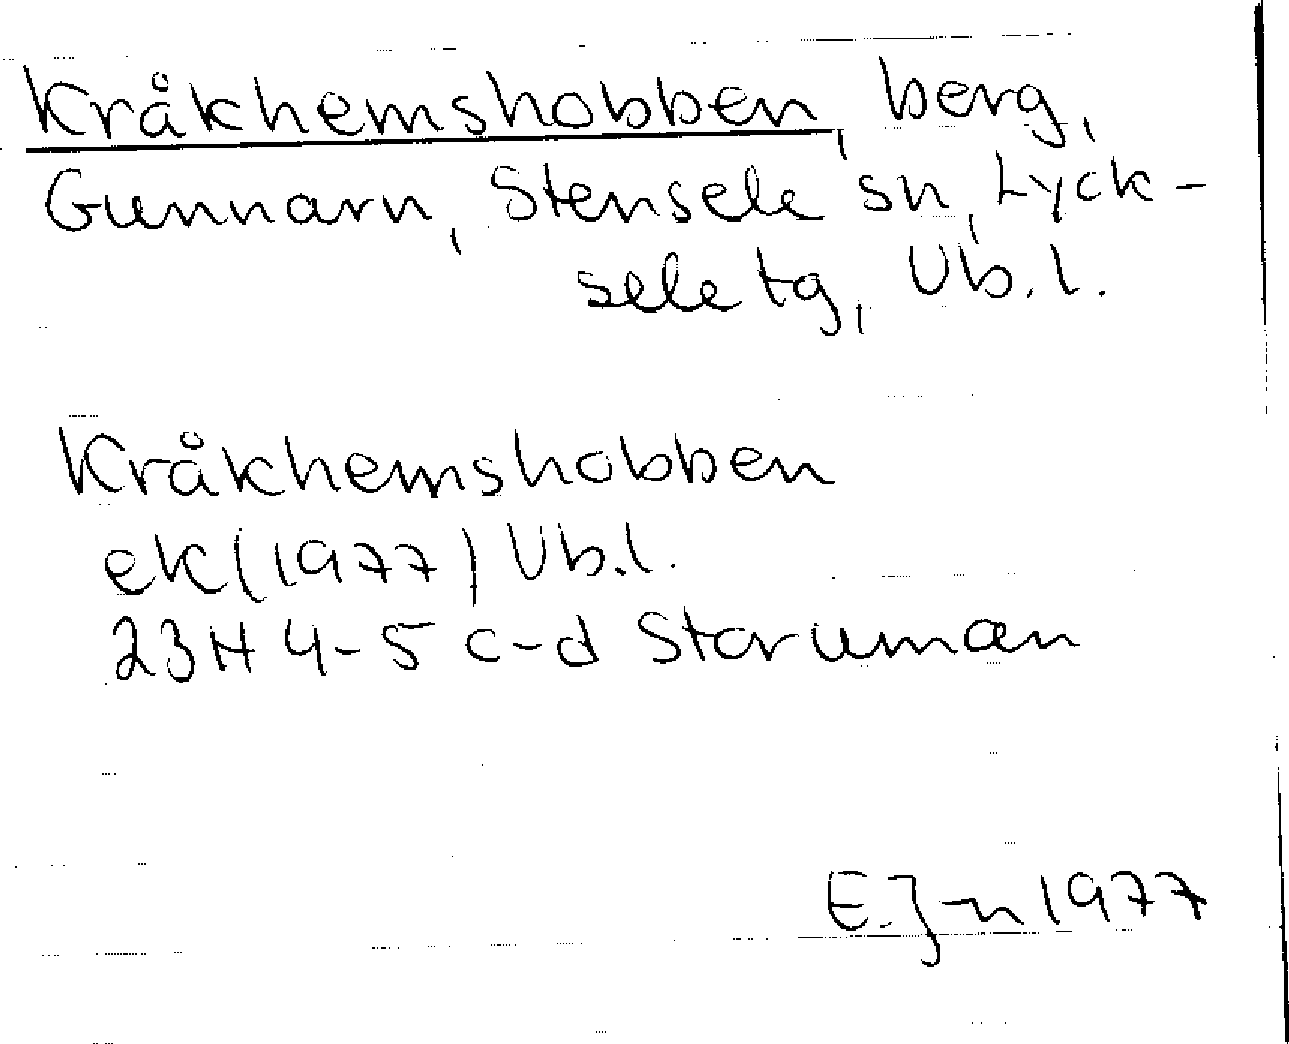 Kråkhemshobben, berg,
Gunnarn, Stensele sn, Lyck-
sele tg, Vb.l.
Kråkhemshobben
ek (1977) Vb.l.
23H 4-5 c-d Storuman
E.J-n 1977